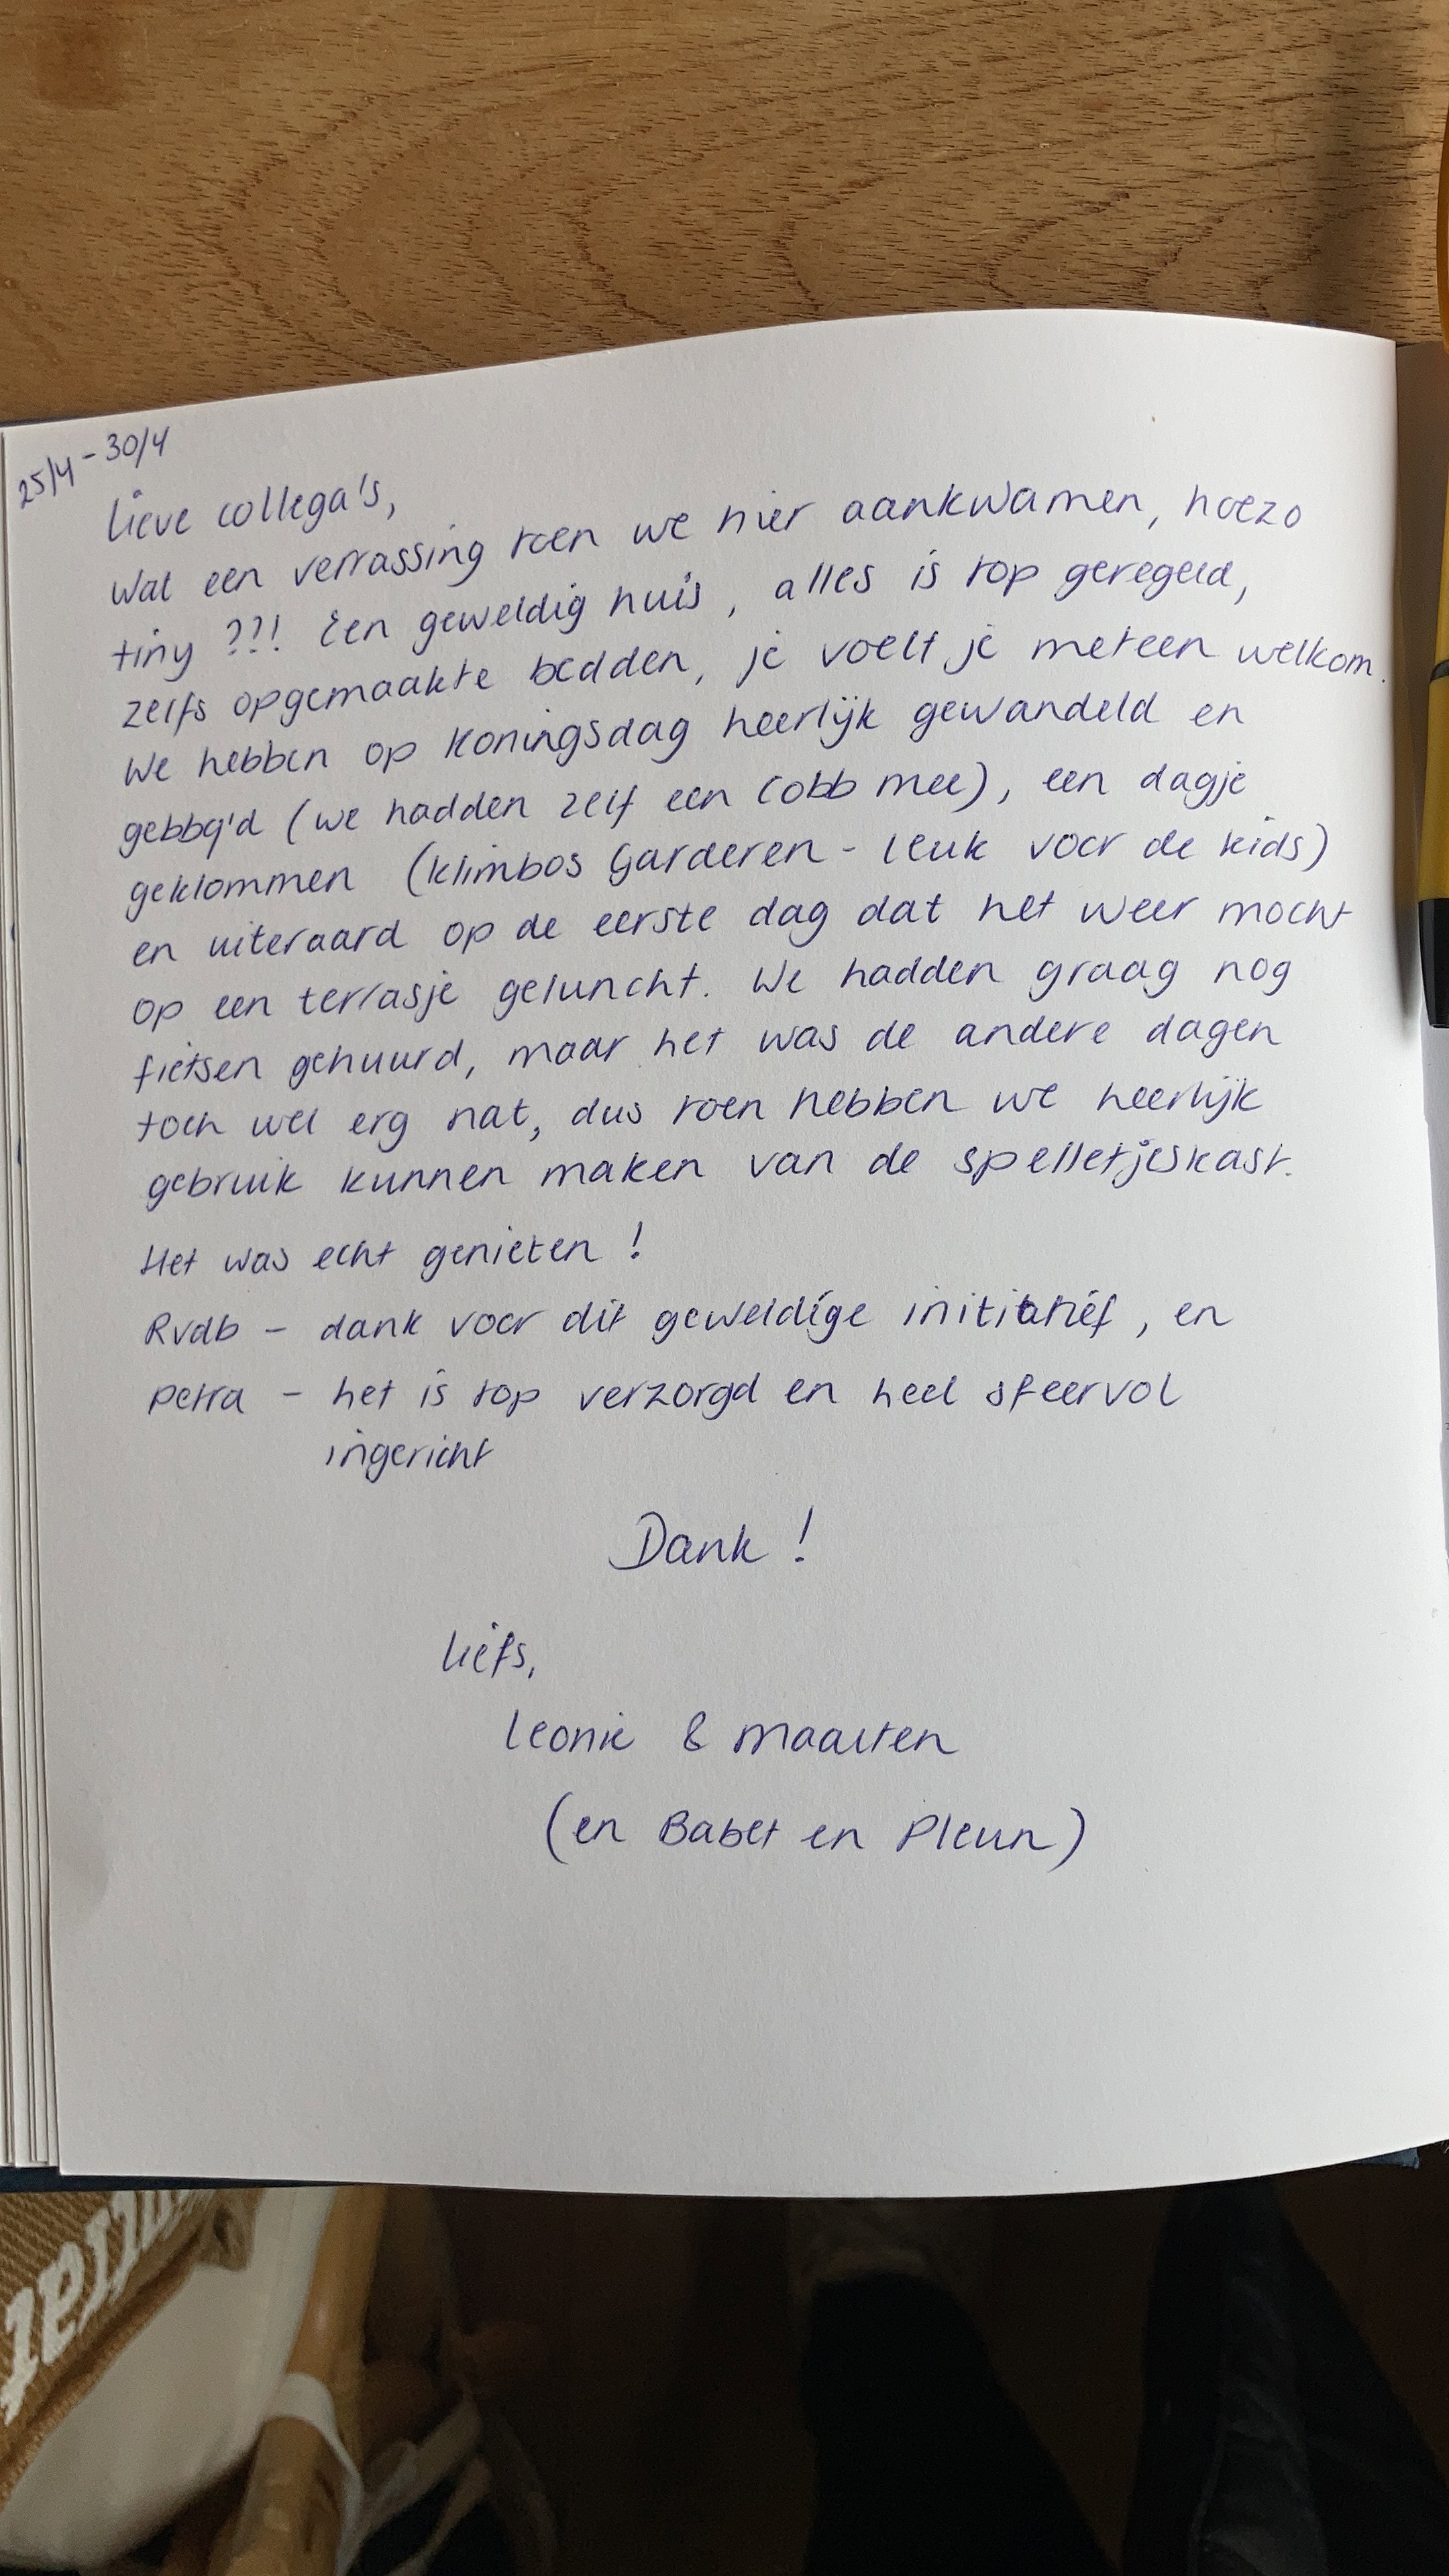 25/4 - 30/4
Lieve collega's,
Wat een verrassing toen we hier aankwamen, hoezo
tiny ??! Een geweldig huis, alles is top geregeld,
zelfs opgemaakte bedden, je voelt je meteen welkom.
We hebben op Koningsdag heerlijk gewandeld en
gebbq'd (we hadden zelf een Cobb mee), een dagje
geklommen (klimbos Garderen - leuk voor de kids)
en uiteraard op de eerste dag dat het weer mocht
op een terrasje geluncht. We hadden graag nog
fietsen gehuurd, maar het was de andere dagen
toch wel erg nat, dus toen hebben we heerlijk
gebruik kunnen maken van de spelletjeskast.
Het was echt genieten !
RvdB - dank voor dit geweldige initiatief, en
Petra - het is top verzorgd en heel sfeervol
ingericht
Dank !
Liefs,
Leonie & Maarten
(en Babet en Pleun)